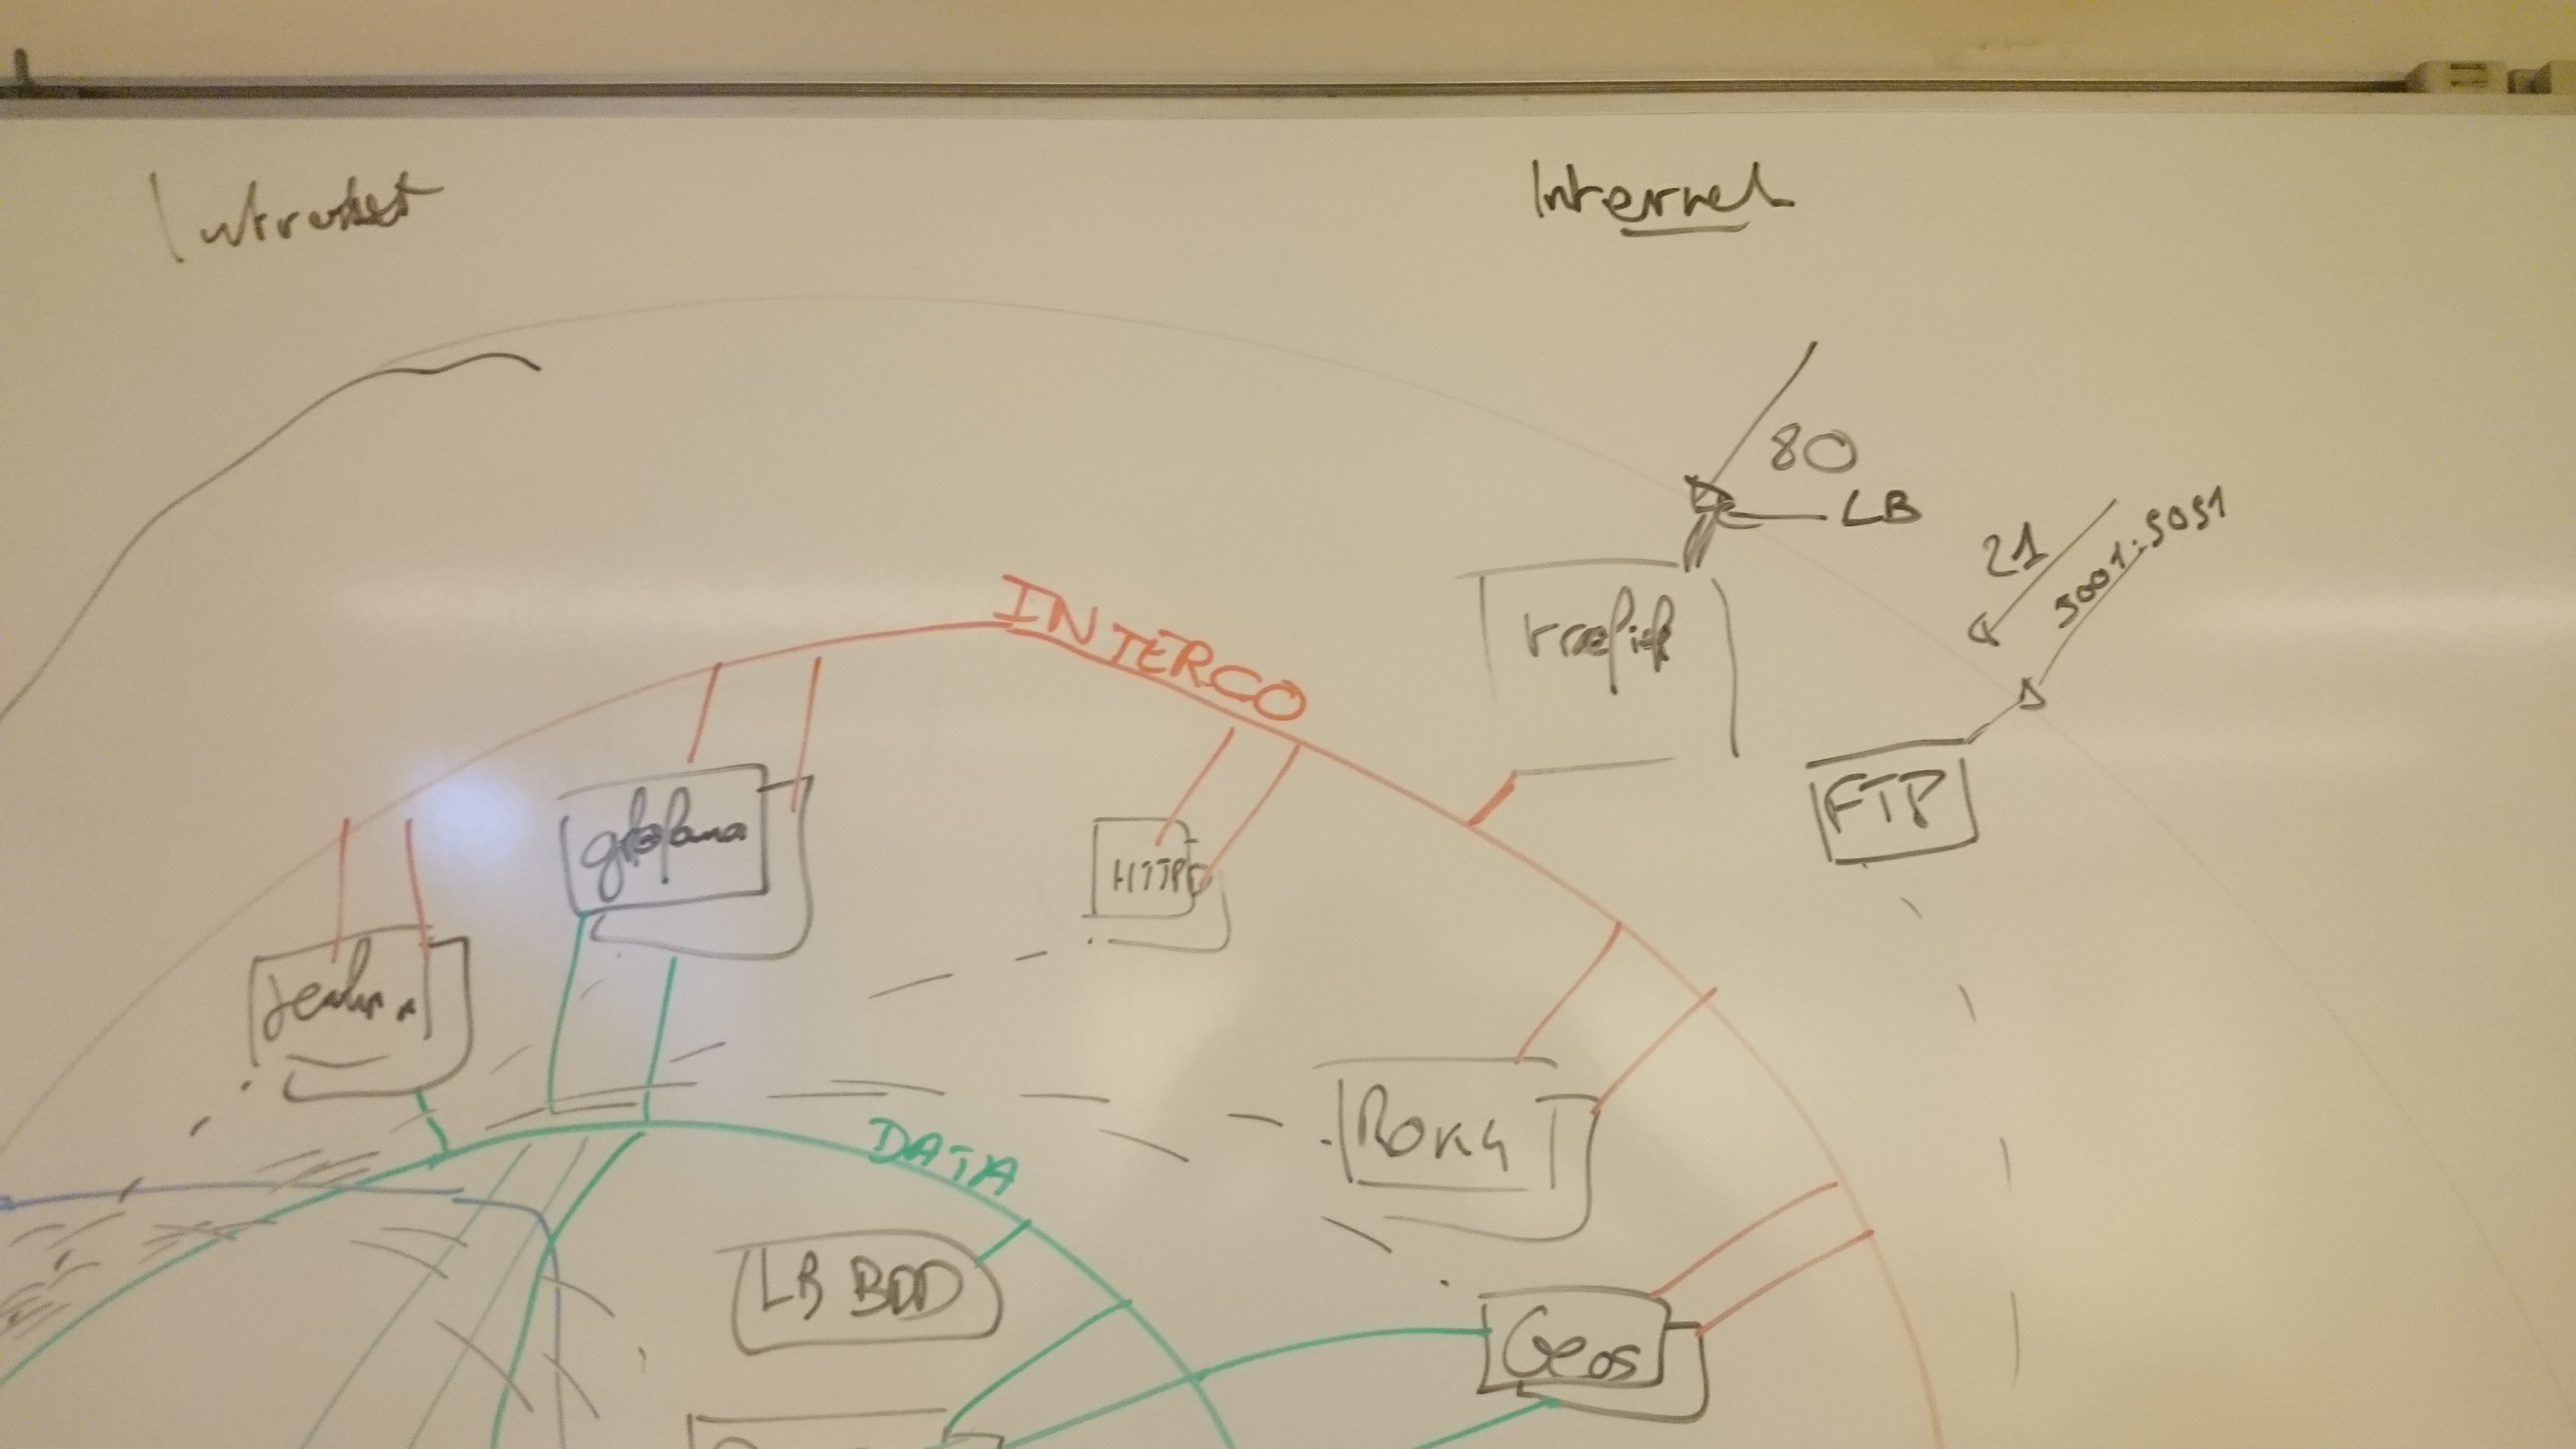 Intranet
Internet
80
LB
21
5001:5051
INTERCO
traefik
FTP
grafana
HTTPD
DATA
LB BDD
Geos